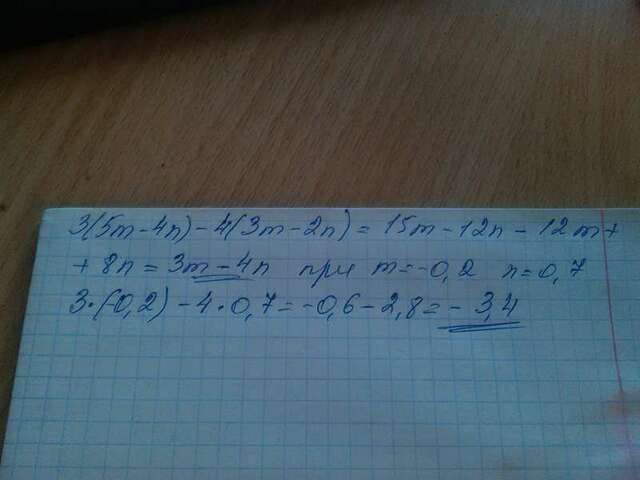 3(5m-4n)-4(3m-2n)=15m-12n-12m+
+8n=3m-4n при m=-0,2 n=0,7
3·(-0,2)-4·0,7=-0,6-2,8=-3,4